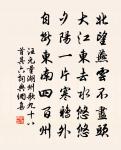 北望燕雲不盡頭
大江東去水悠悠
夕陽一片寒鴉外
目斷東西四百州
汪元量湖州歌九十八
首其六詞典網集